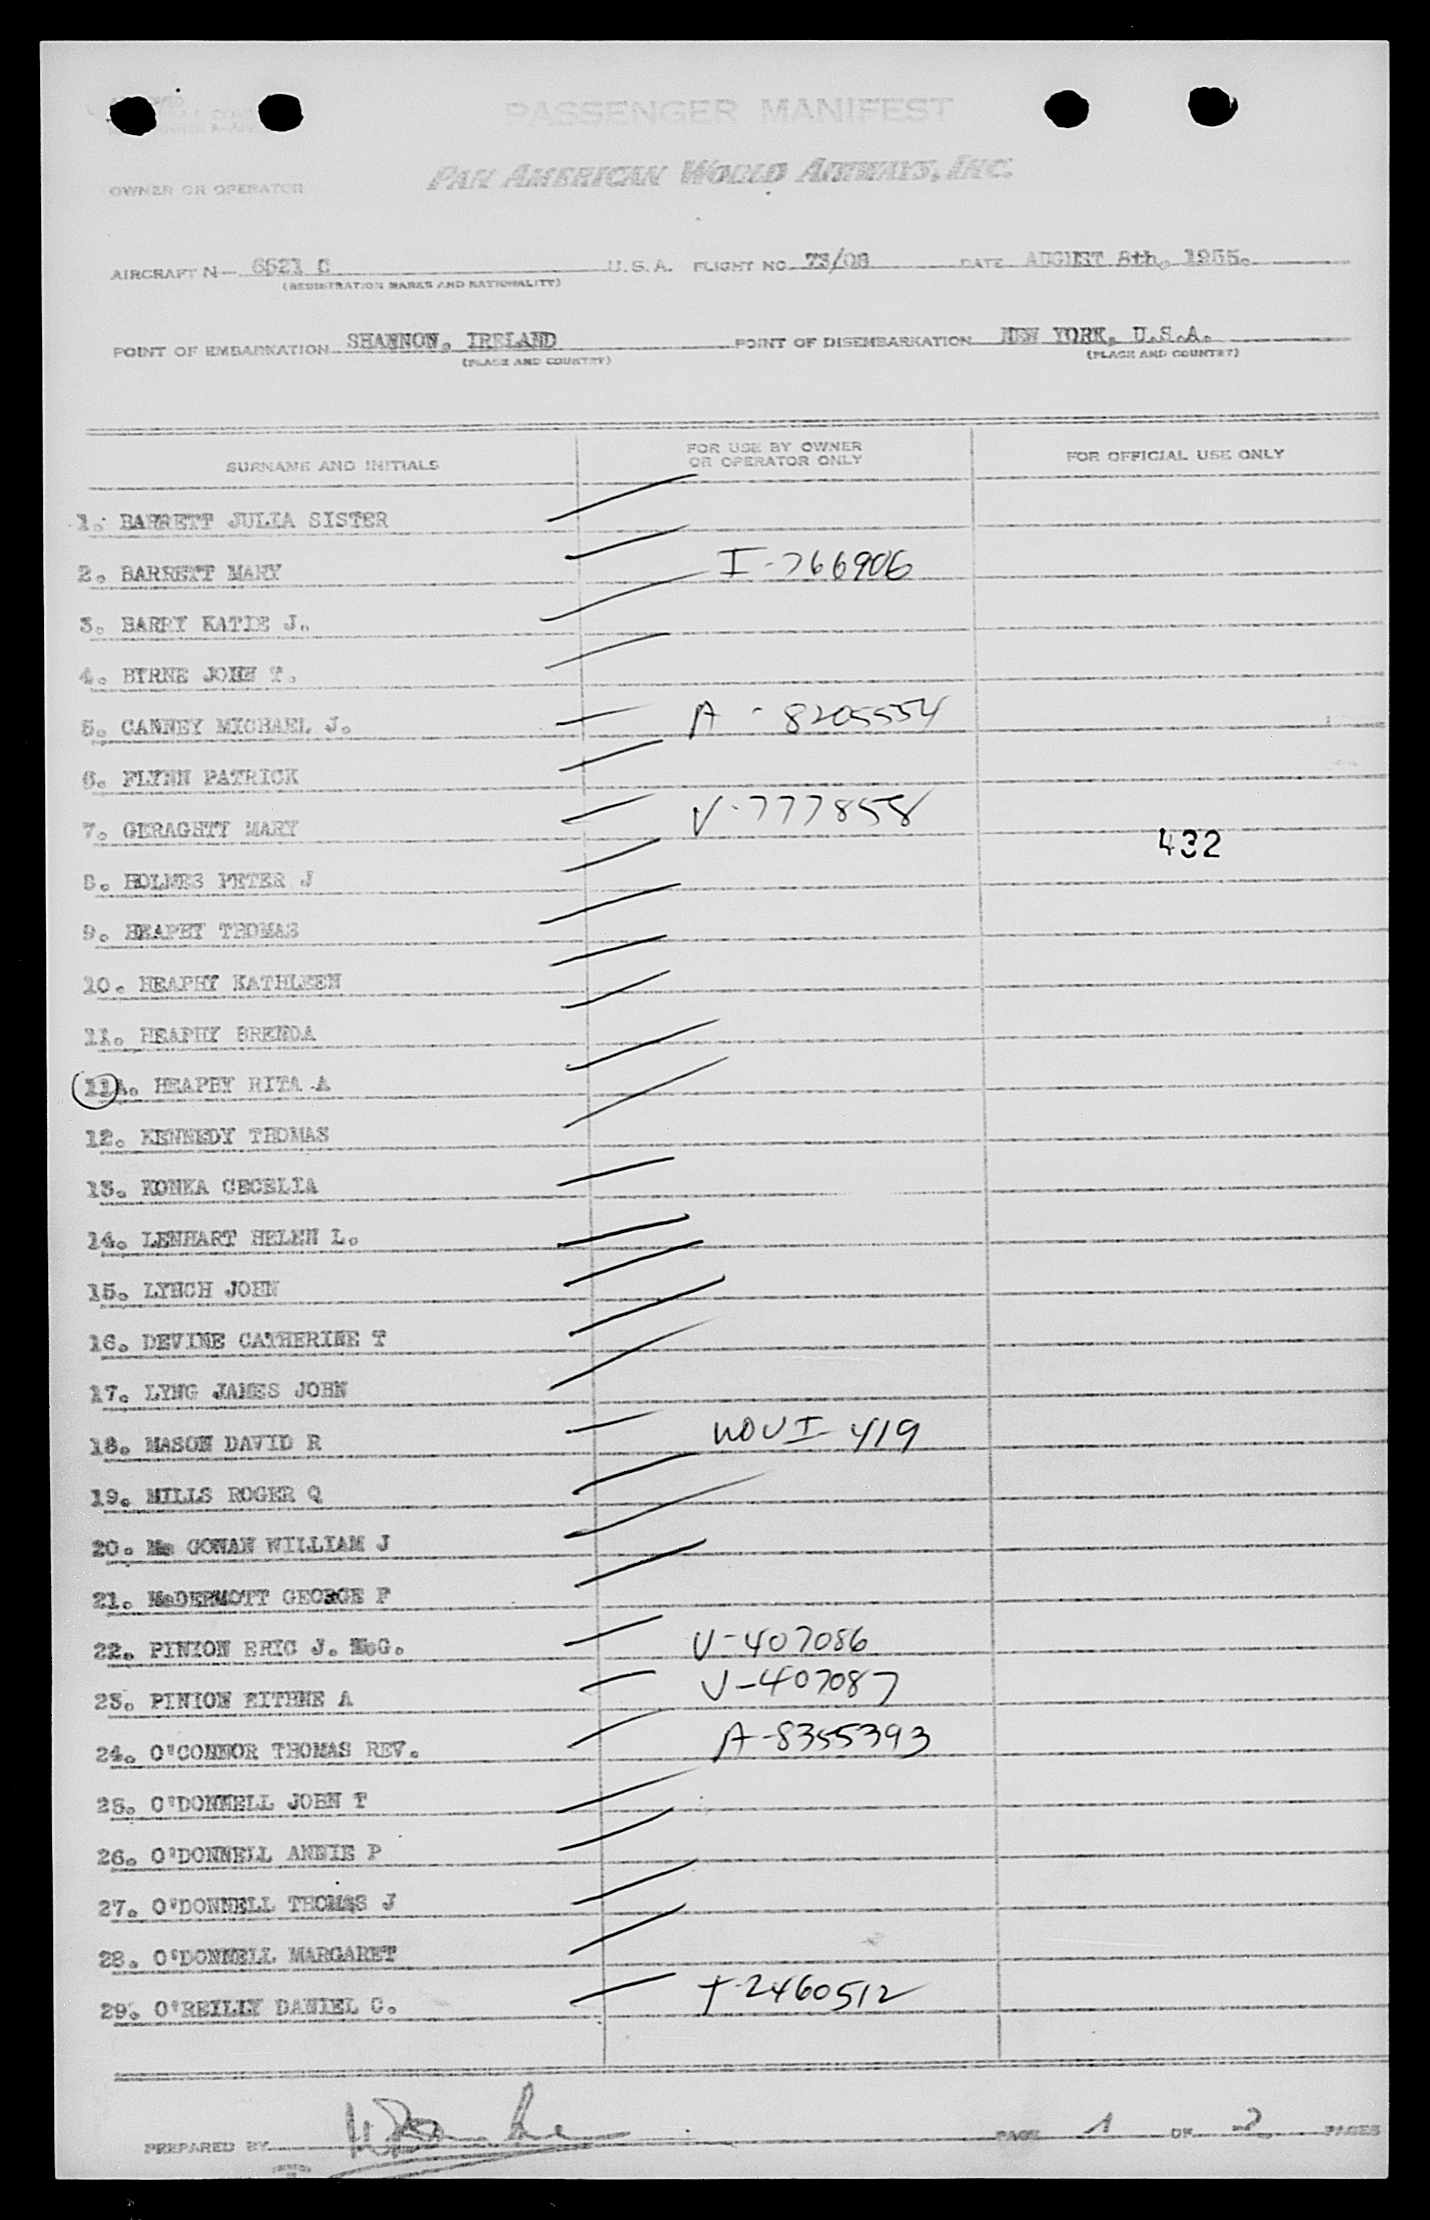 PASSENGER MANIFEST
PAN AMERICAN WORLD AIRWAYS, INC.
OWNER OR OPERATOR
AIRCRAFT N- 6521 C U.S.A. FLIGHT NO. 73/08 DATE AUGUST 8th, 1955.
(REGISTRATION MARKS AND NATIONALITY)
POINT OF EMBARKATION SHANNON, IRELAND POINT OF DISEMBARKATION NEW YORK, U.S.A.
(PLACE AND COUNTRY) (PLACE AND COUNTRY)
SURNAME AND INITIALS FOR USE BY OWNER OR OPERATOR ONLY FOR OFFICIAL USE ONLY
1. BARRETT JULIA SISTER
2. BARRETT MARY I-766906
3. BARRY KATIE J.
4. BYRNE JOHN T.
5. CANNEY MICHAEL J. A-8205554
6. FLYNN PATRICK
7. GERAGHTY MARY V-777858
432
8. HOLMES PETER J
9. HEAPHY THOMAS
10. HEAPHY KATHLEEN
11. HEAPHY BRENDA
11A. HEAPHY RITA A
12. KENNEDY THOMAS
13. KONKA CECELIA
14. LENHART HELEN L.
15. LYNCH JOHN
16. DEVINE CATHERINE T
17. LYNG JAMES JOHN
18. MASON DAVID R NOVI-419
19. MILLS ROGER Q
20. Mc GOWAN WILLIAM J
21. McDERMOTT GEORGE F
22. PINION ERIC J. McG. V-407086
23. PINION EITHNE A V-407087
24. O'CONNOR THOMAS REV. A-8355393
25. O'DONNELL JOHN T
26. O'DONNELL ANNIE P
27. O'DONNELL THOMAS J
28. O'DONNELL MARGARET
29. O'REILLY DANIEL C. T-2460512
PREPARED BY PAGE 1 OF 2 PAGES